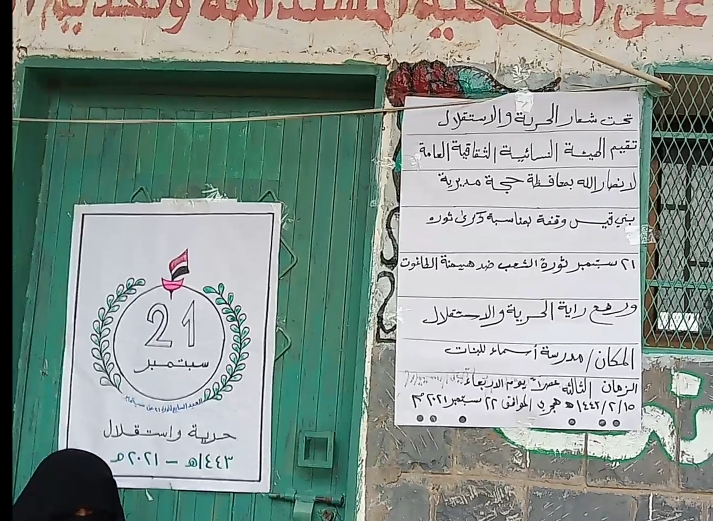 على التنمية المستدامة وتقديم
تحت شعار الحرية والاستقلال
تقيم الهيئة النسائية الثقافية العامة
لانصار الله بمحافظة حجة مديرية
بني قيس وقفة بمناسبة ذكرى ثورة
٢١ سبتمبر ثورة الشعب ضد هيمنة الطاغوت
ورفع راية الحرية والاستقلال
المكان/ مدرسة أسماء للبنات
الزمان الثالثة عصراً يوم الاربعاء
١٤٤٣/٢/١٥ هـ هجرية الموافق ٢٢ سبتمبر ٢٠٢١م
21
سبتمبر
حرية واستقلال
١٤٤٣هـ - ٢٠٢١م